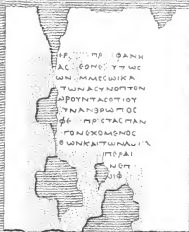 ΕΡ ΠΡ ΦΑΝΗ
ΑΣ ΕΘΝΕ ΥΤΩΣ
ΩΝ ΜΜΕΣΩΙΚΑ
ΤΩΝΑΣΥΝΟΠΤΟΝ
ΩΡΟΥΝΤΑΣΟΤΙΟΥ
ΥΝΑΝΘΡΩΠΟΣ
ΦΕ ΠΡ ΣΤΑΣΠΑΝ
ΓΟΝΕΧΟΜΕΝΟΣ
Θ ΩΝΚΑΙΤΩΝΑ
ΠΕΡΑΙ
ΝΕΠ
ΩΙΦ